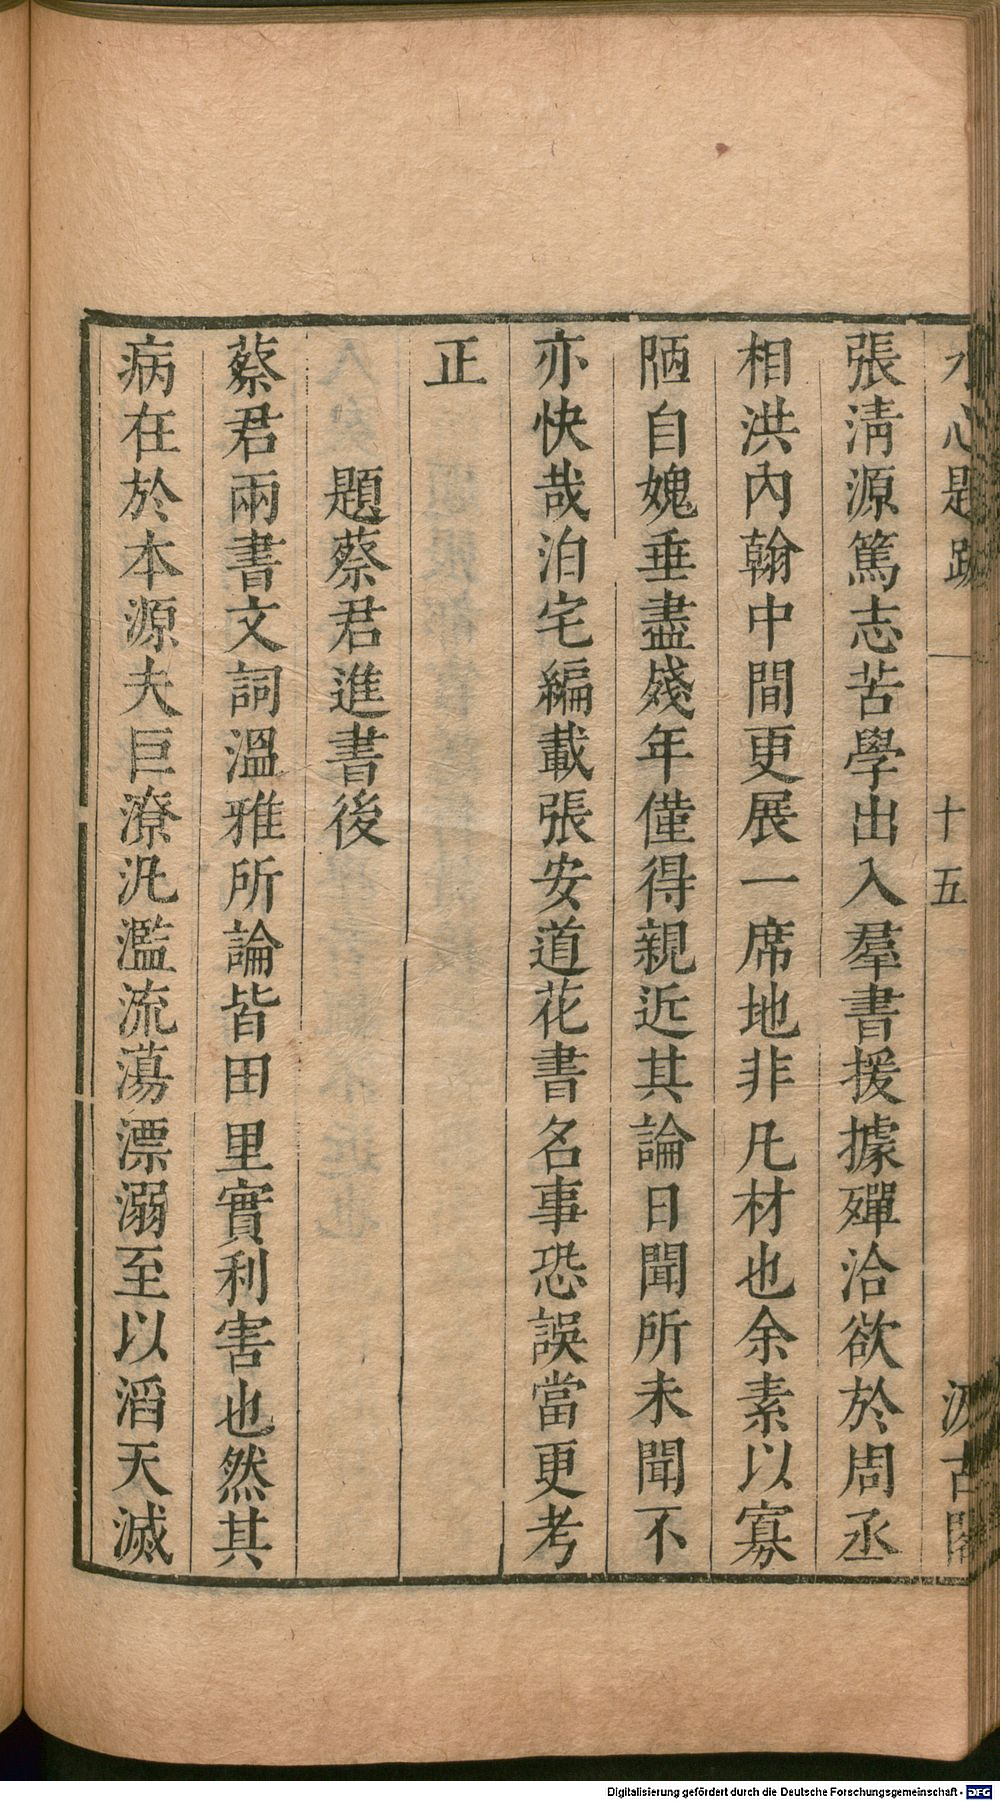 水心題跋 一 十五 汲古閣
張淸源篤志苦學出入羣書援據殫洽欲於周丞
相洪內翰中間更展一席地非凡材也余素以寡
陋自媿垂盡殘年僅得親近其論日聞所未聞不
亦快哉泊宅編載張安道花書名事恐誤當更考
正
題蔡君進書後
蔡君兩書文詞溫雅所論皆田里實利害也然其
病在於本源夫巨潦汎濫流蕩漂溺至以滔天滅
Digitalisierung gefördert durch die Deutsche Forschungsgemeinschaft - DFG